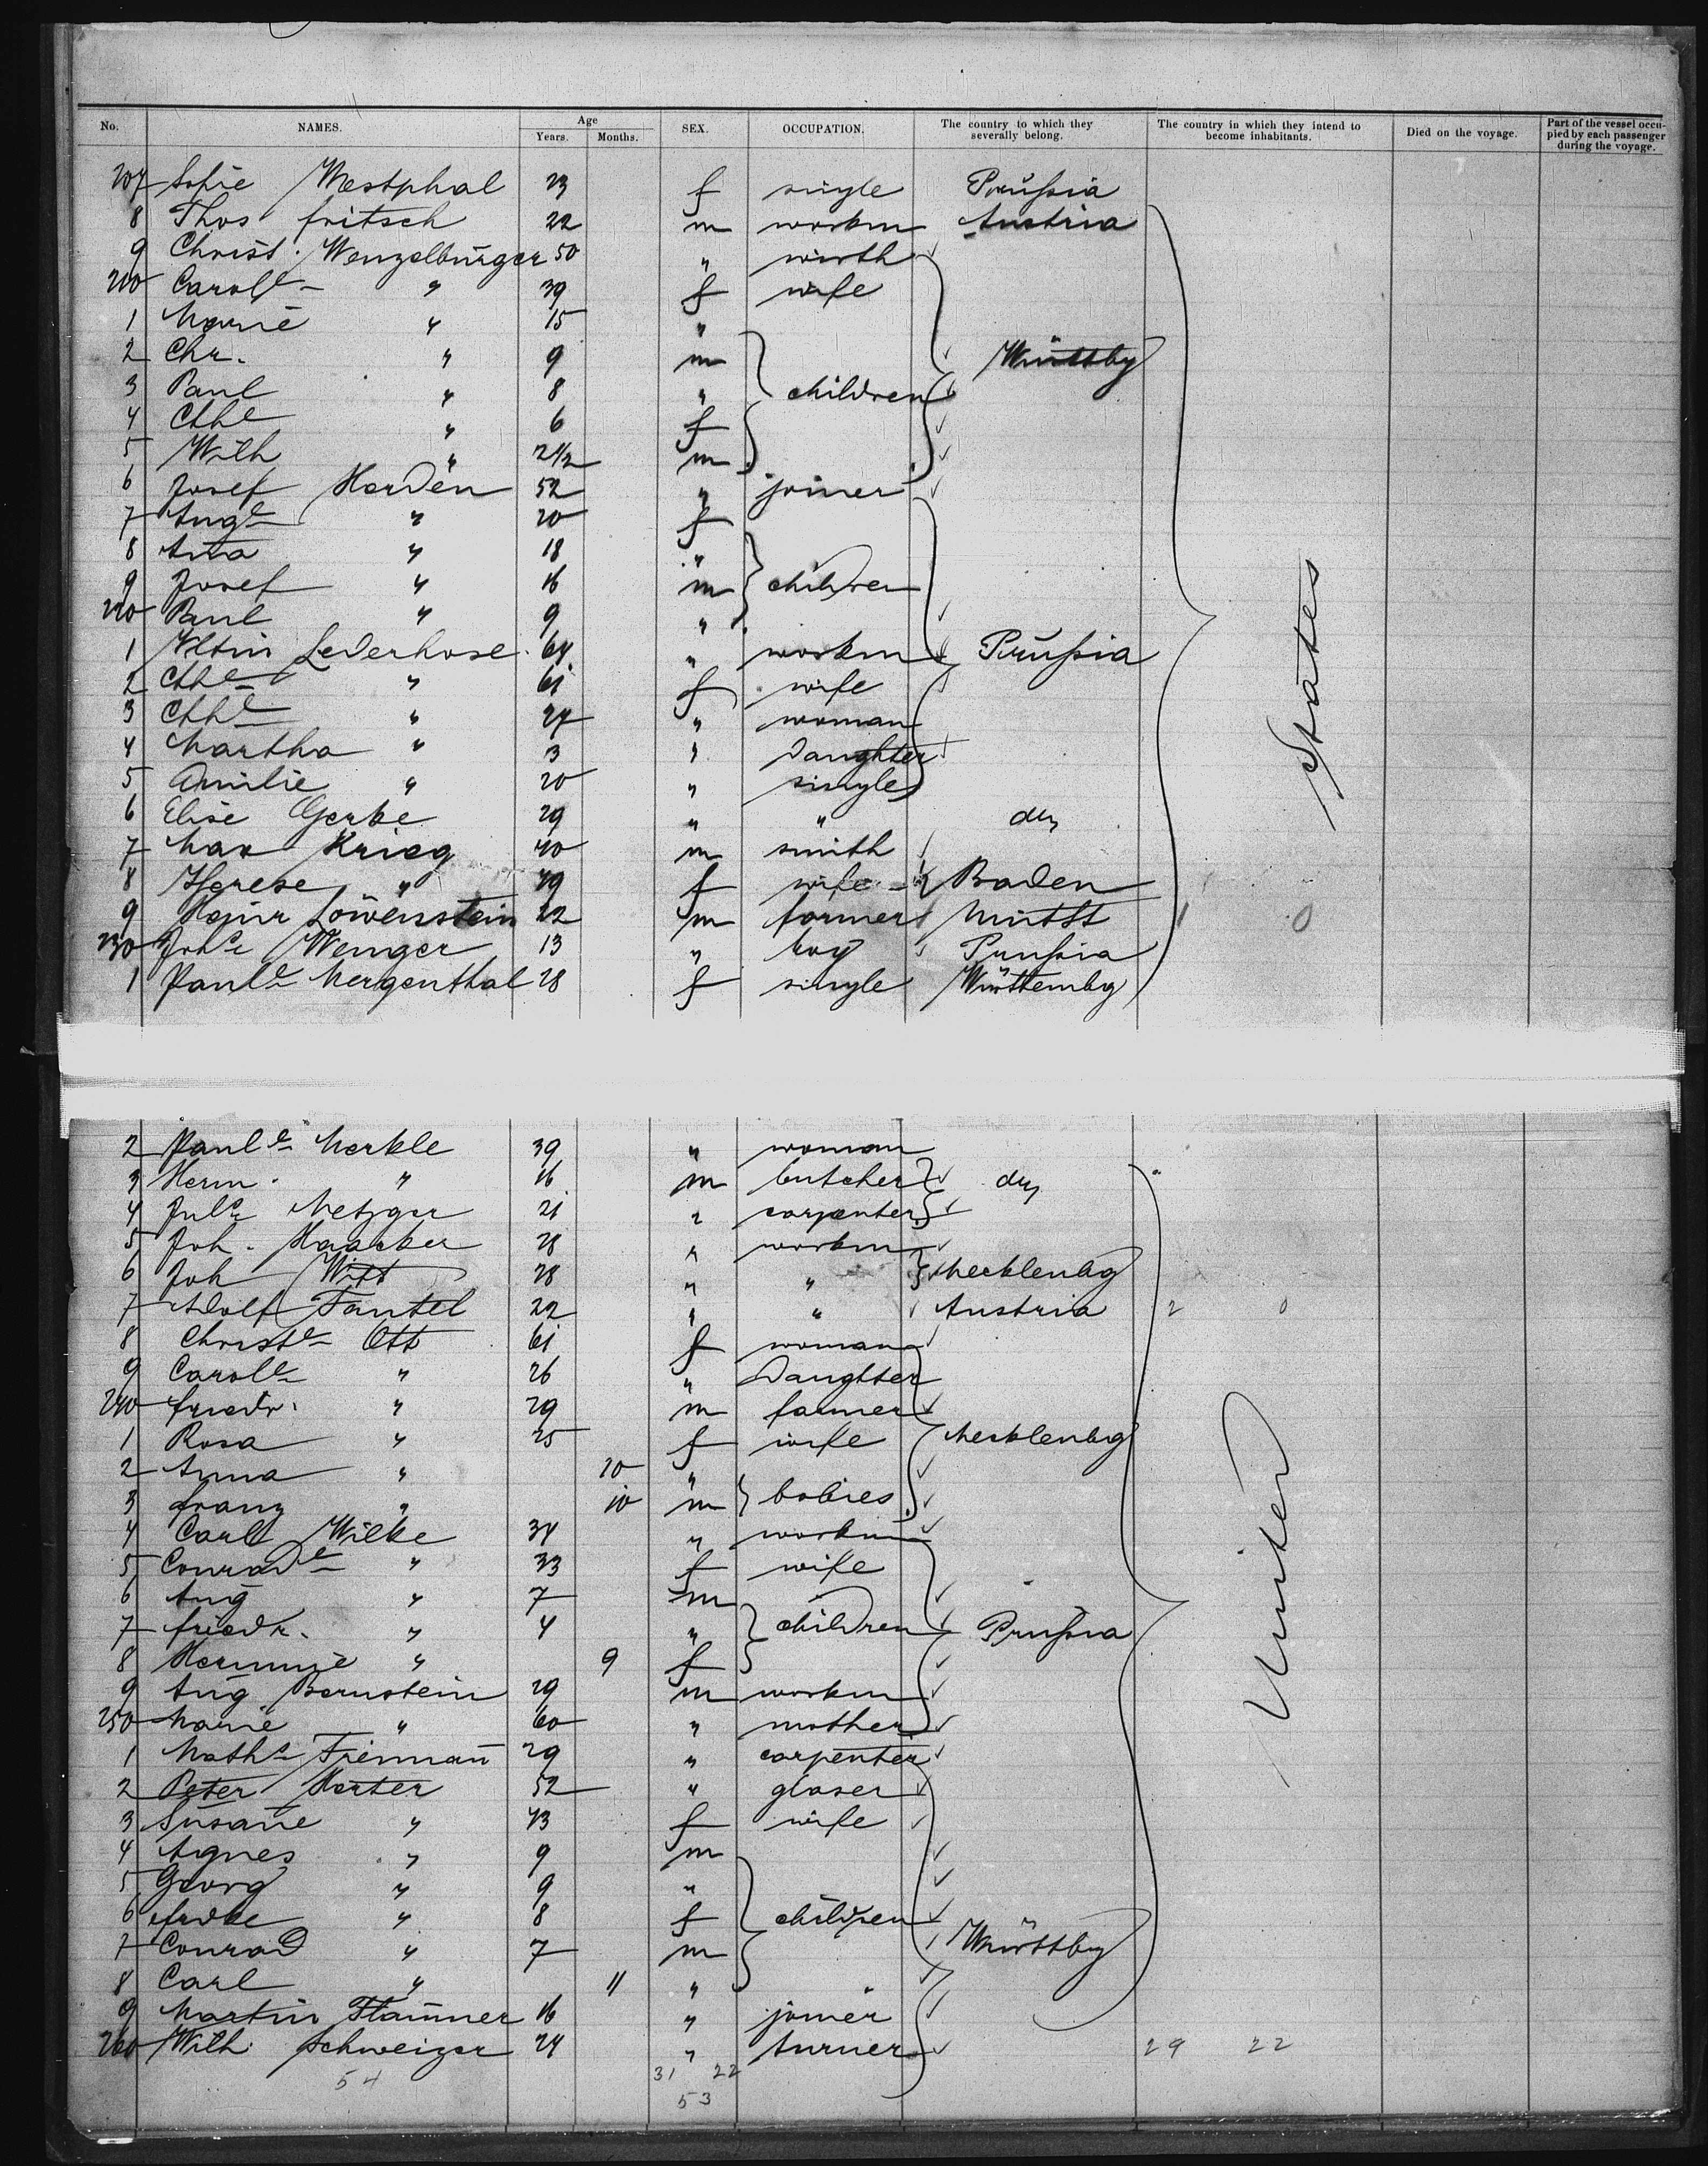 No. NAMES. Age Years. Months. SEX. OCCUPATION. The country to which they severally belong. The country in which they intend to become inhabitants. Died on the voyage. Part of the vessel occupied by each passenger during the voyage.
207 Sofie Westphal 23 f single Prußia
8 Thos fritsch 22 m workm Austria
9 Christ. Wenzelburger 50 " wirth
210 Carole " 39 f wife
1 Marie " 15 "
2 Chr. " 9 m
3 Paul " 8 " children Württbg
4 Cthe " 6 f
5 Wilh " 2 1/2 m
6 Josef Harden 52 " joiner
7 Auge " 20 f
8 Ana " 18 "
9 Josef " 16 m children
220 Paul " 9 "
1 Vltin Lederhose 64 " workm Prußia
2 Cthe " 61 f wife
3 Cthe " 27 " woman
4 Martha " 3 " Daughter
5 Amilie " 20 " single
6 Elise Gerke 29 " " do
7 Max Krieg 40 m smith
8 Therese " 49 f wife Baden
9 Heinr Löwenstein 22 m farmer 1 0
230 Johs Wenger 13 " boy Prußia
1 Paule Mergenthal 28 f single Württembg
States
2 Paule Merkle 39 " woman
3 Herm. " 16 m butcher do
4 Juls Metzger 21 " carpenter
5 Joh. Haarker 28 " workm
6 Joh Witt 28 " " Mecklenbg
7 Adolf Tantel 22 " " Austria 2 0
8 Christe Ott 61 f woman
9 Carole " 26 " Daughter
240 friedr. " 29 m farmer
1 Rosa " 25 f wife Mecklenbg
2 Anna " 10 "
3 franz " 10 m babies
4 Carl Wilke 34 " workm
5 Conrade " 33 f wife
6 Aug " 7 m
7 friedr. " 4 " children Prußia
8 Hermine " 9 f
9 Aug Bernstein 29 m workm
250 Marie " 60 " mother
1 Maths Frimman 29 " carpenter
2 Peter Harter 52 " glaser
3 Susane " 43 f wife
4 Agnes " 9 m
5 Georg " 9 "
6 frdke " 8 f children
7 Conrad " 7 m Württbg
8 Carl " 11 "
9 Martin Flammer 16 " joiner
260 Wilh. Schweizer 24 " turner 29 22
United
54 31 22
53